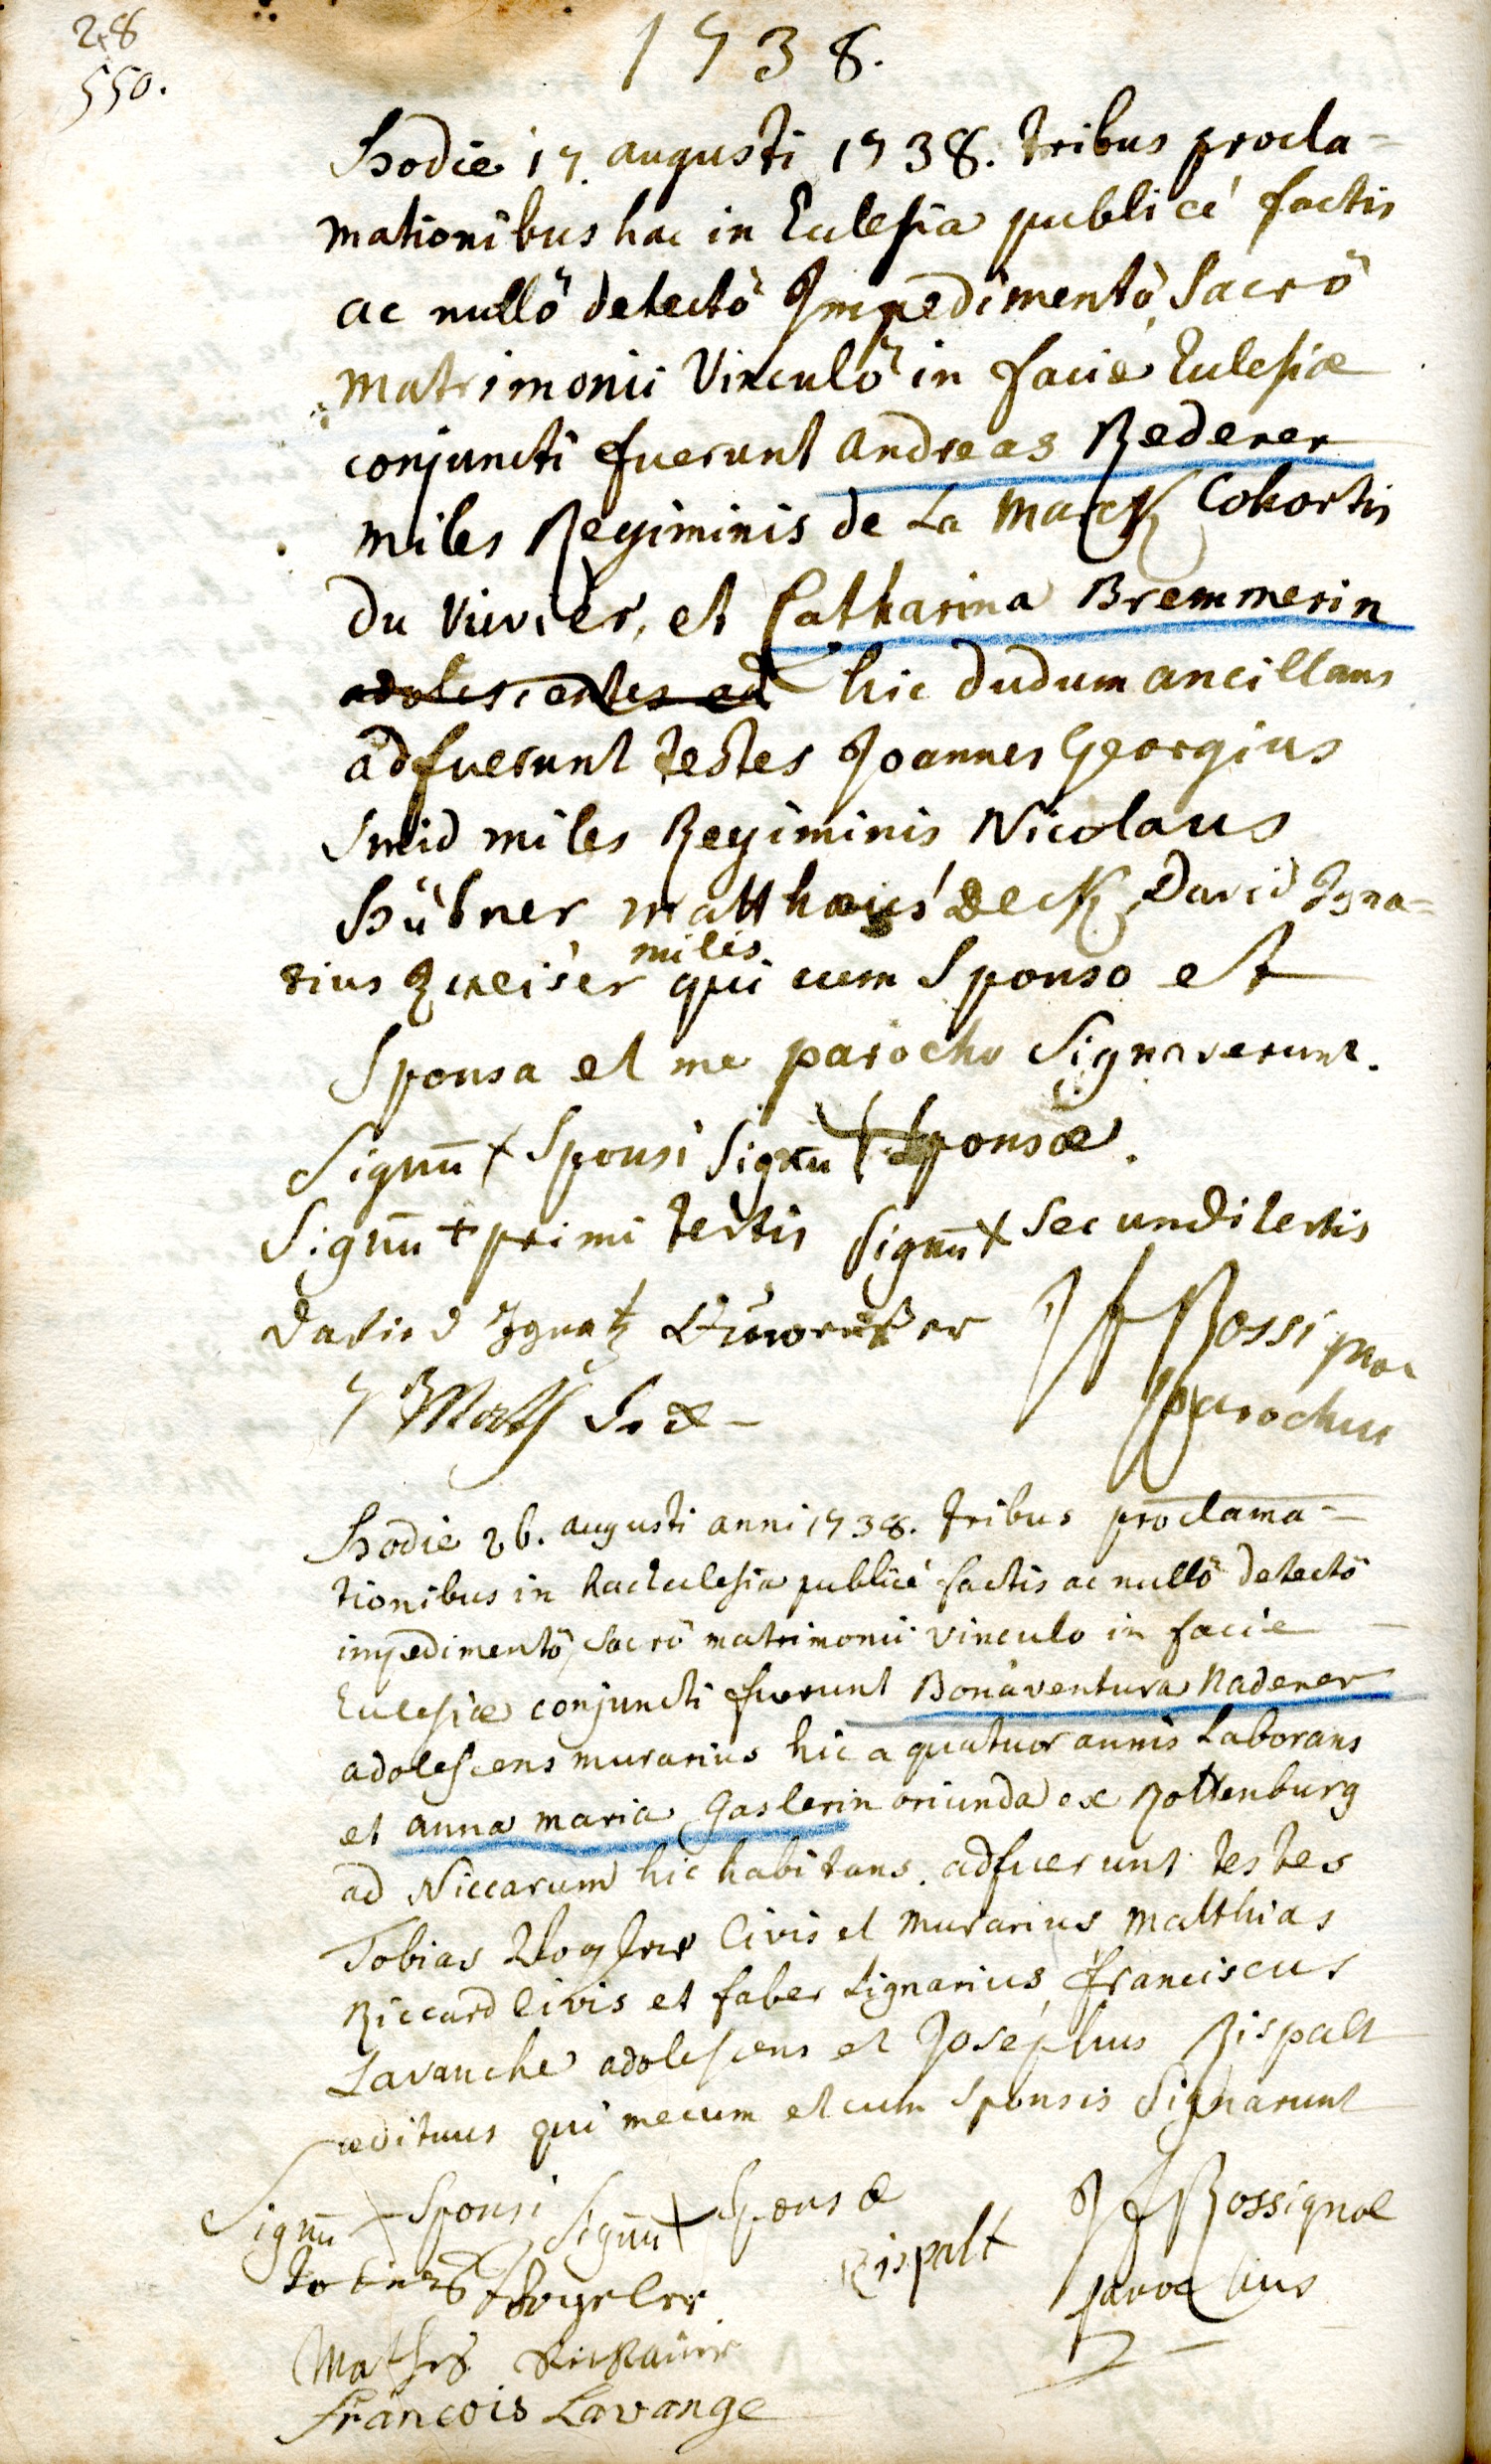 28
550.
1738.
Hodie 17. augusti 1738. tribus procla-
mationibus hac in Eulesia publicé factis
ac nullö detectö Impedimentö Sacrö
matrimonii Vinculö in facie Eulesiæ
conjuncti fuerunt andreas Rederer
miles Regiminis de La Marck Cohortis
du Vivier, et Catharina Bremmerin
hic dudum ancillans
adfuerunt testes Joannes Georgius
Smid miles Regiminis Nicolaus
Hübner matthæus Deck David Igna-
milis
tius qui cum Sponso et
Sponsa et me parocho Signaverunt.
Signū + Sponsi Signū + Sponsæ.
Signū + primi testis Signū + secundi testis
David Ignatz JfRossignol
parochus
Hodie 26. augusti anni 1738. tribus proclama-
tionibus in hac Eulesia publicé factis ac nullö detectö
impedimentö, sacrö matrimonii vinculo in facie
Eulesiæ conjuncti fuerunt Bonaventura Naderer
adolescens murarius hic a quatuor annis Laborans
et anna maria Gaslerin oriunda ex Rottenburg
ad Niccarum hic habitans. adfuerunt testes
Tobias Vogler Civis et murarius, matthias
Riccard Civis et faber Lignarius, franciscus
Lavanche adolescens et Josephus Rispalt
ædituus qui mecum et cum Sponsis Signarunt
Signū + Sponsi Signū + Sponsæ
Rispalt JfRossignol
parochus
Tobias Vogeler
Mathis
François Lavange